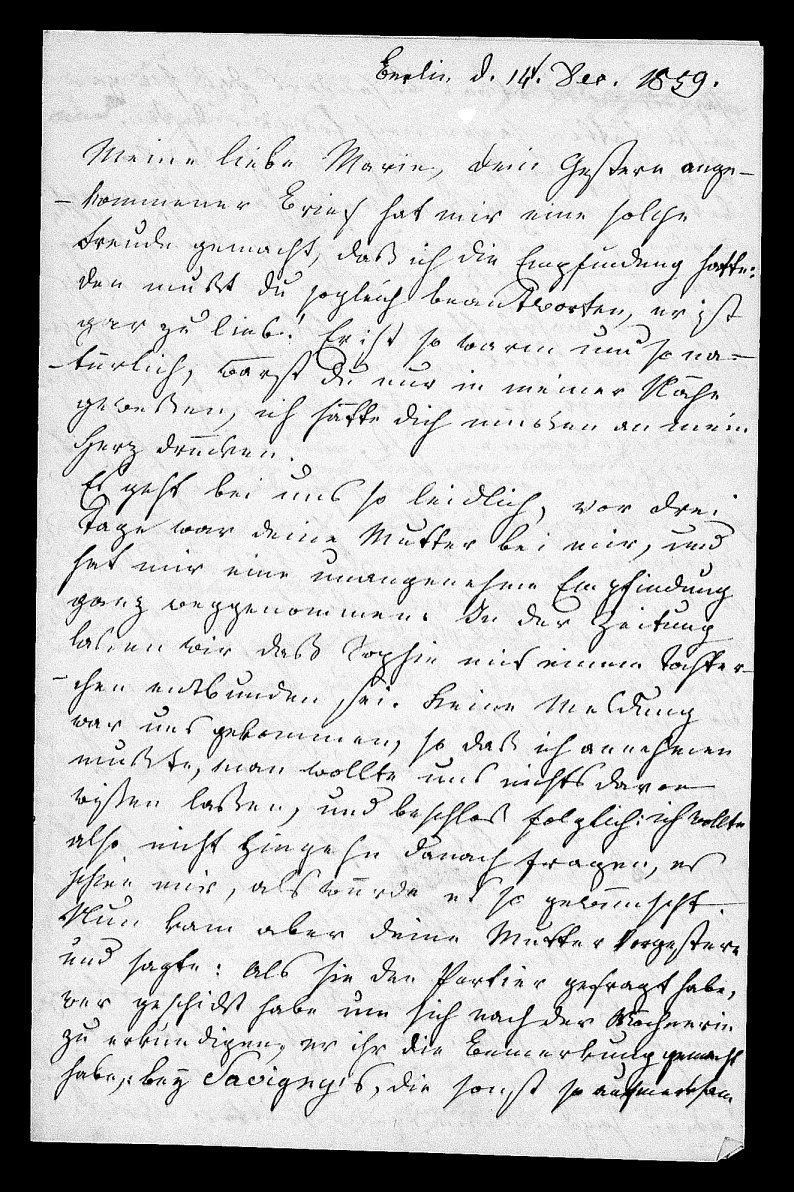 Berlin, d. 14t. Dec. 1859.
Meine liebe Marie, dein Gestern ange-
-kommener Brief hat mir eine solche
Freude gemacht, daß ich die Empfindung hatte:
den mußt du sogleich beantworten, er ist
gar zu lieb! Er ist so warm und so na-
-türlich, wärst Du nur in meiner Nähe
geweßen, ich hätte dich müssen an mein
Herz drücken.
Es geht bei uns so leidlich, vor drei
Tage war deine Mutter bei mir, und
hat mir eine unangenehme Empfindung
ganz weggenommen. In der Zeitung
lasen wir daß Sophie mit einem Töchter-
-chen entbunden sei. Keine Meldung
war uns gekommen, so daß ich annehmen
mußte, man wollte uns nichts davon
wißen laßen, und beschloß folglich: ich wollte
also nicht hingehn danach fragen, es
schien mir, als würde es so gewünscht.
Nun kam aber deine Mutter Vorgestern
und sagte: als sie den Portier gefragt habe,
wer geschickt habe um sich nach der Wöchnerin
zu erkundigen, er ihr die Bemerkung gemacht
habe: bey Savigny's, die sonst so aufmerksam